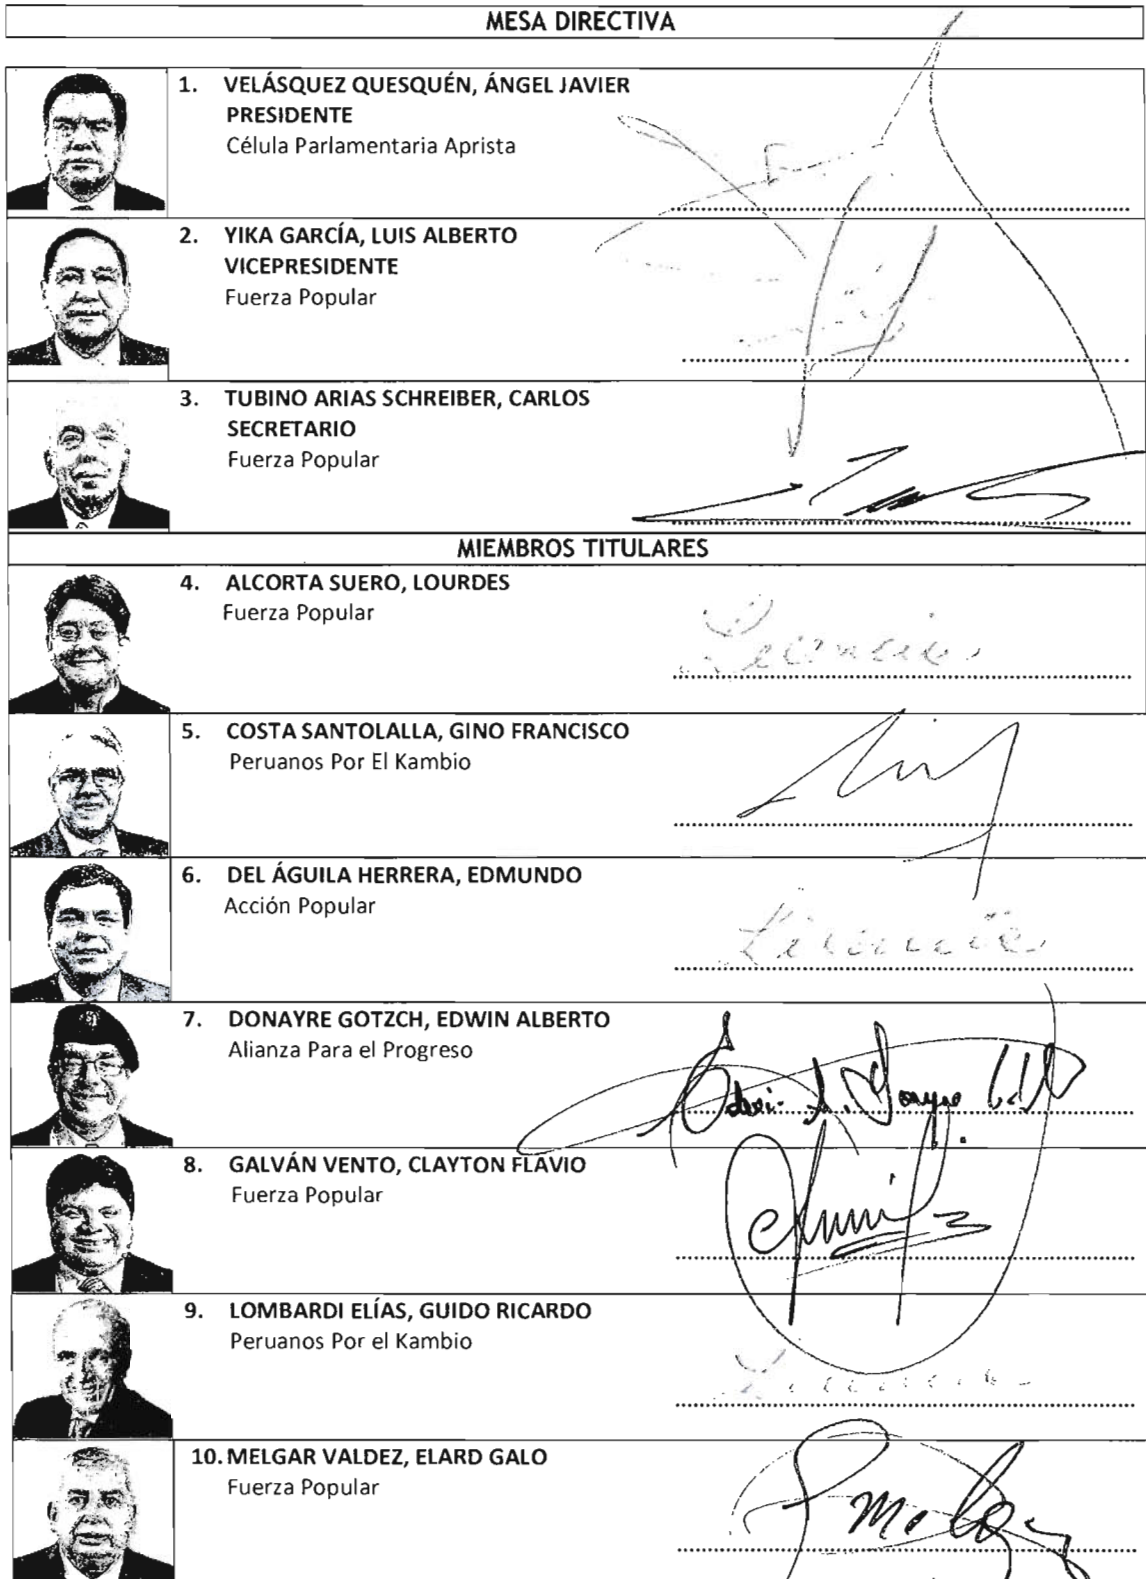 MESA DIRECTIVA
1. VELÁSQUEZ QUESQUÉN, ÁNGEL JAVIER
PRESIDENTE
Célula Parlamentaria Aprista
2. YIKA GARCÍA, LUIS ALBERTO
VICEPRESIDENTE
Fuerza Popular
3. TUBINO ARIAS SCHREIBER, CARLOS
SECRETARIO
Fuerza Popular
MIEMBROS TITULARES
4. ALCORTA SUERO, LOURDES
Fuerza Popular
Licencia
5. COSTA SANTOLALLA, GINO FRANCISCO
Peruanos Por El Kambio
6. DEL ÁGUILA HERRERA, EDMUNDO
Acción Popular
Licencia
7. DONAYRE GOTZCH, EDWIN ALBERTO
Alianza Para el Progreso
8. GALVÁN VENTO, CLAYTON FLAVIO
Fuerza Popular
9. LOMBARDI ELÍAS, GUIDO RICARDO
Peruanos Por el Kambio
Licencia
10. MELGAR VALDEZ, ELARD GALO
Fuerza Popular